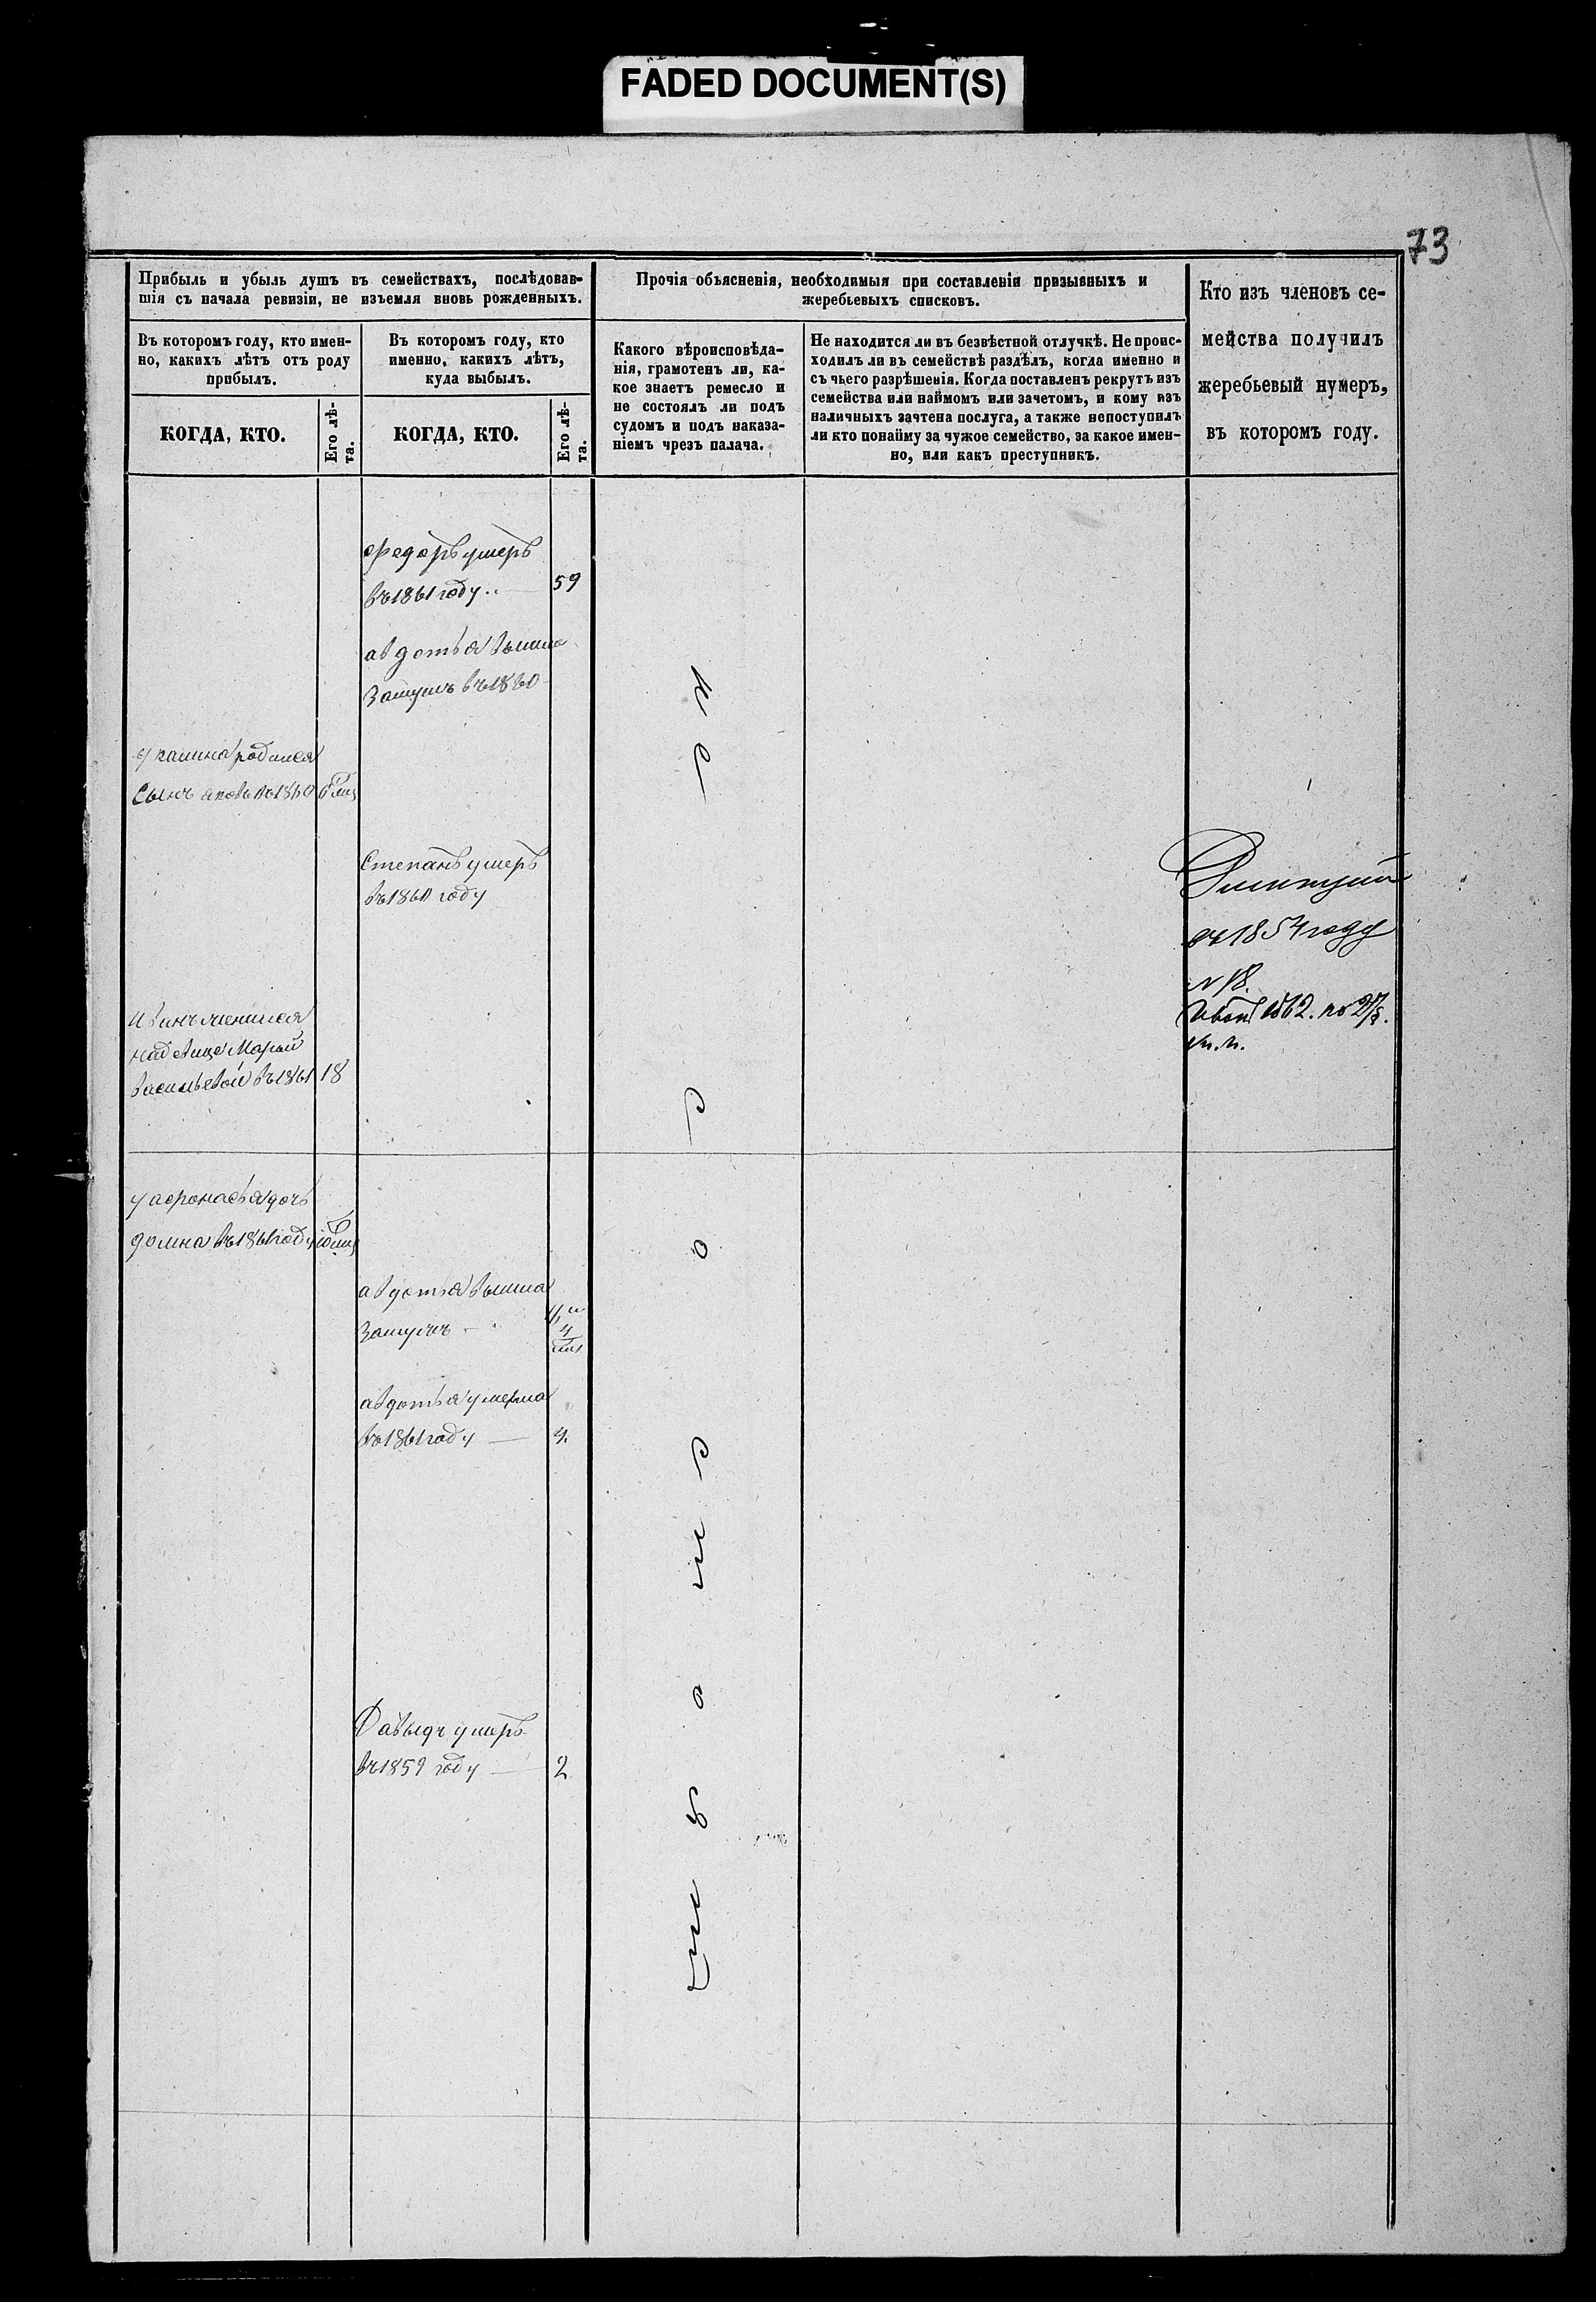 FADED DOCUMENT(S)
73
Прибыль и убыль душъ въ семействахъ, послѣдовав-
шія съ начала ревизіи, не изъемля вновь рожденныхъ.
Въ которомъ году, кто имен-
но, какихъ лѣтъ отъ роду
прибылъ.
КОГДА, КТО.
Его лѣ-
та.
Въ которомъ году, кто
именно, какихъ лѣтъ,
куда выбылъ.
КОГДА, КТО.
Его лѣ-
та.
Прочія объясненія, необходимыя при составленіи призывныхъ и
жеребьевыхъ списковъ.
Какого вѣроисповѣда-
нія, грамотенъ ли, ка-
кое знаетъ ремесло и
не состоялъ ли подъ
судомъ и подъ наказа-
ніемъ чрезъ палача.
Не находится ли въ безвѣстной отлучкѣ. Не проис-
ходилъ ли въ семействѣ раздѣлъ, когда именно и
съ чьего разрѣшенія. Когда поставленъ рекрутъ изъ
семейства или наймомъ или зачетомъ, и кому изъ
наличныхъ зачтена послуга, а также непоступилъ
ли кто понайму за чужое семейство, за какое имен-
но, или какъ преступникъ.
Кто изъ членовъ се-
мейства получилъ
жеребьевый нумеръ,
въ которомъ году.
Федоръ умеръ
въ 1861 году 59
авдотья вышла
Замужъ въ 1860
родился
Сынъ въ 1860
Степанъ умеръ
въ 1860 году
Дмитрий
въ 1854 году
N 18.
Иванъ 1862.
женился
надевице Марьи
Васильевой въ 1861 18
у афонасья дочь
домна въ 1861 году
авдотья вышла
Замужъ
авдотья умерла
въ 1861 году 4.
Давыдъ умеръ
въ 1859 году 2